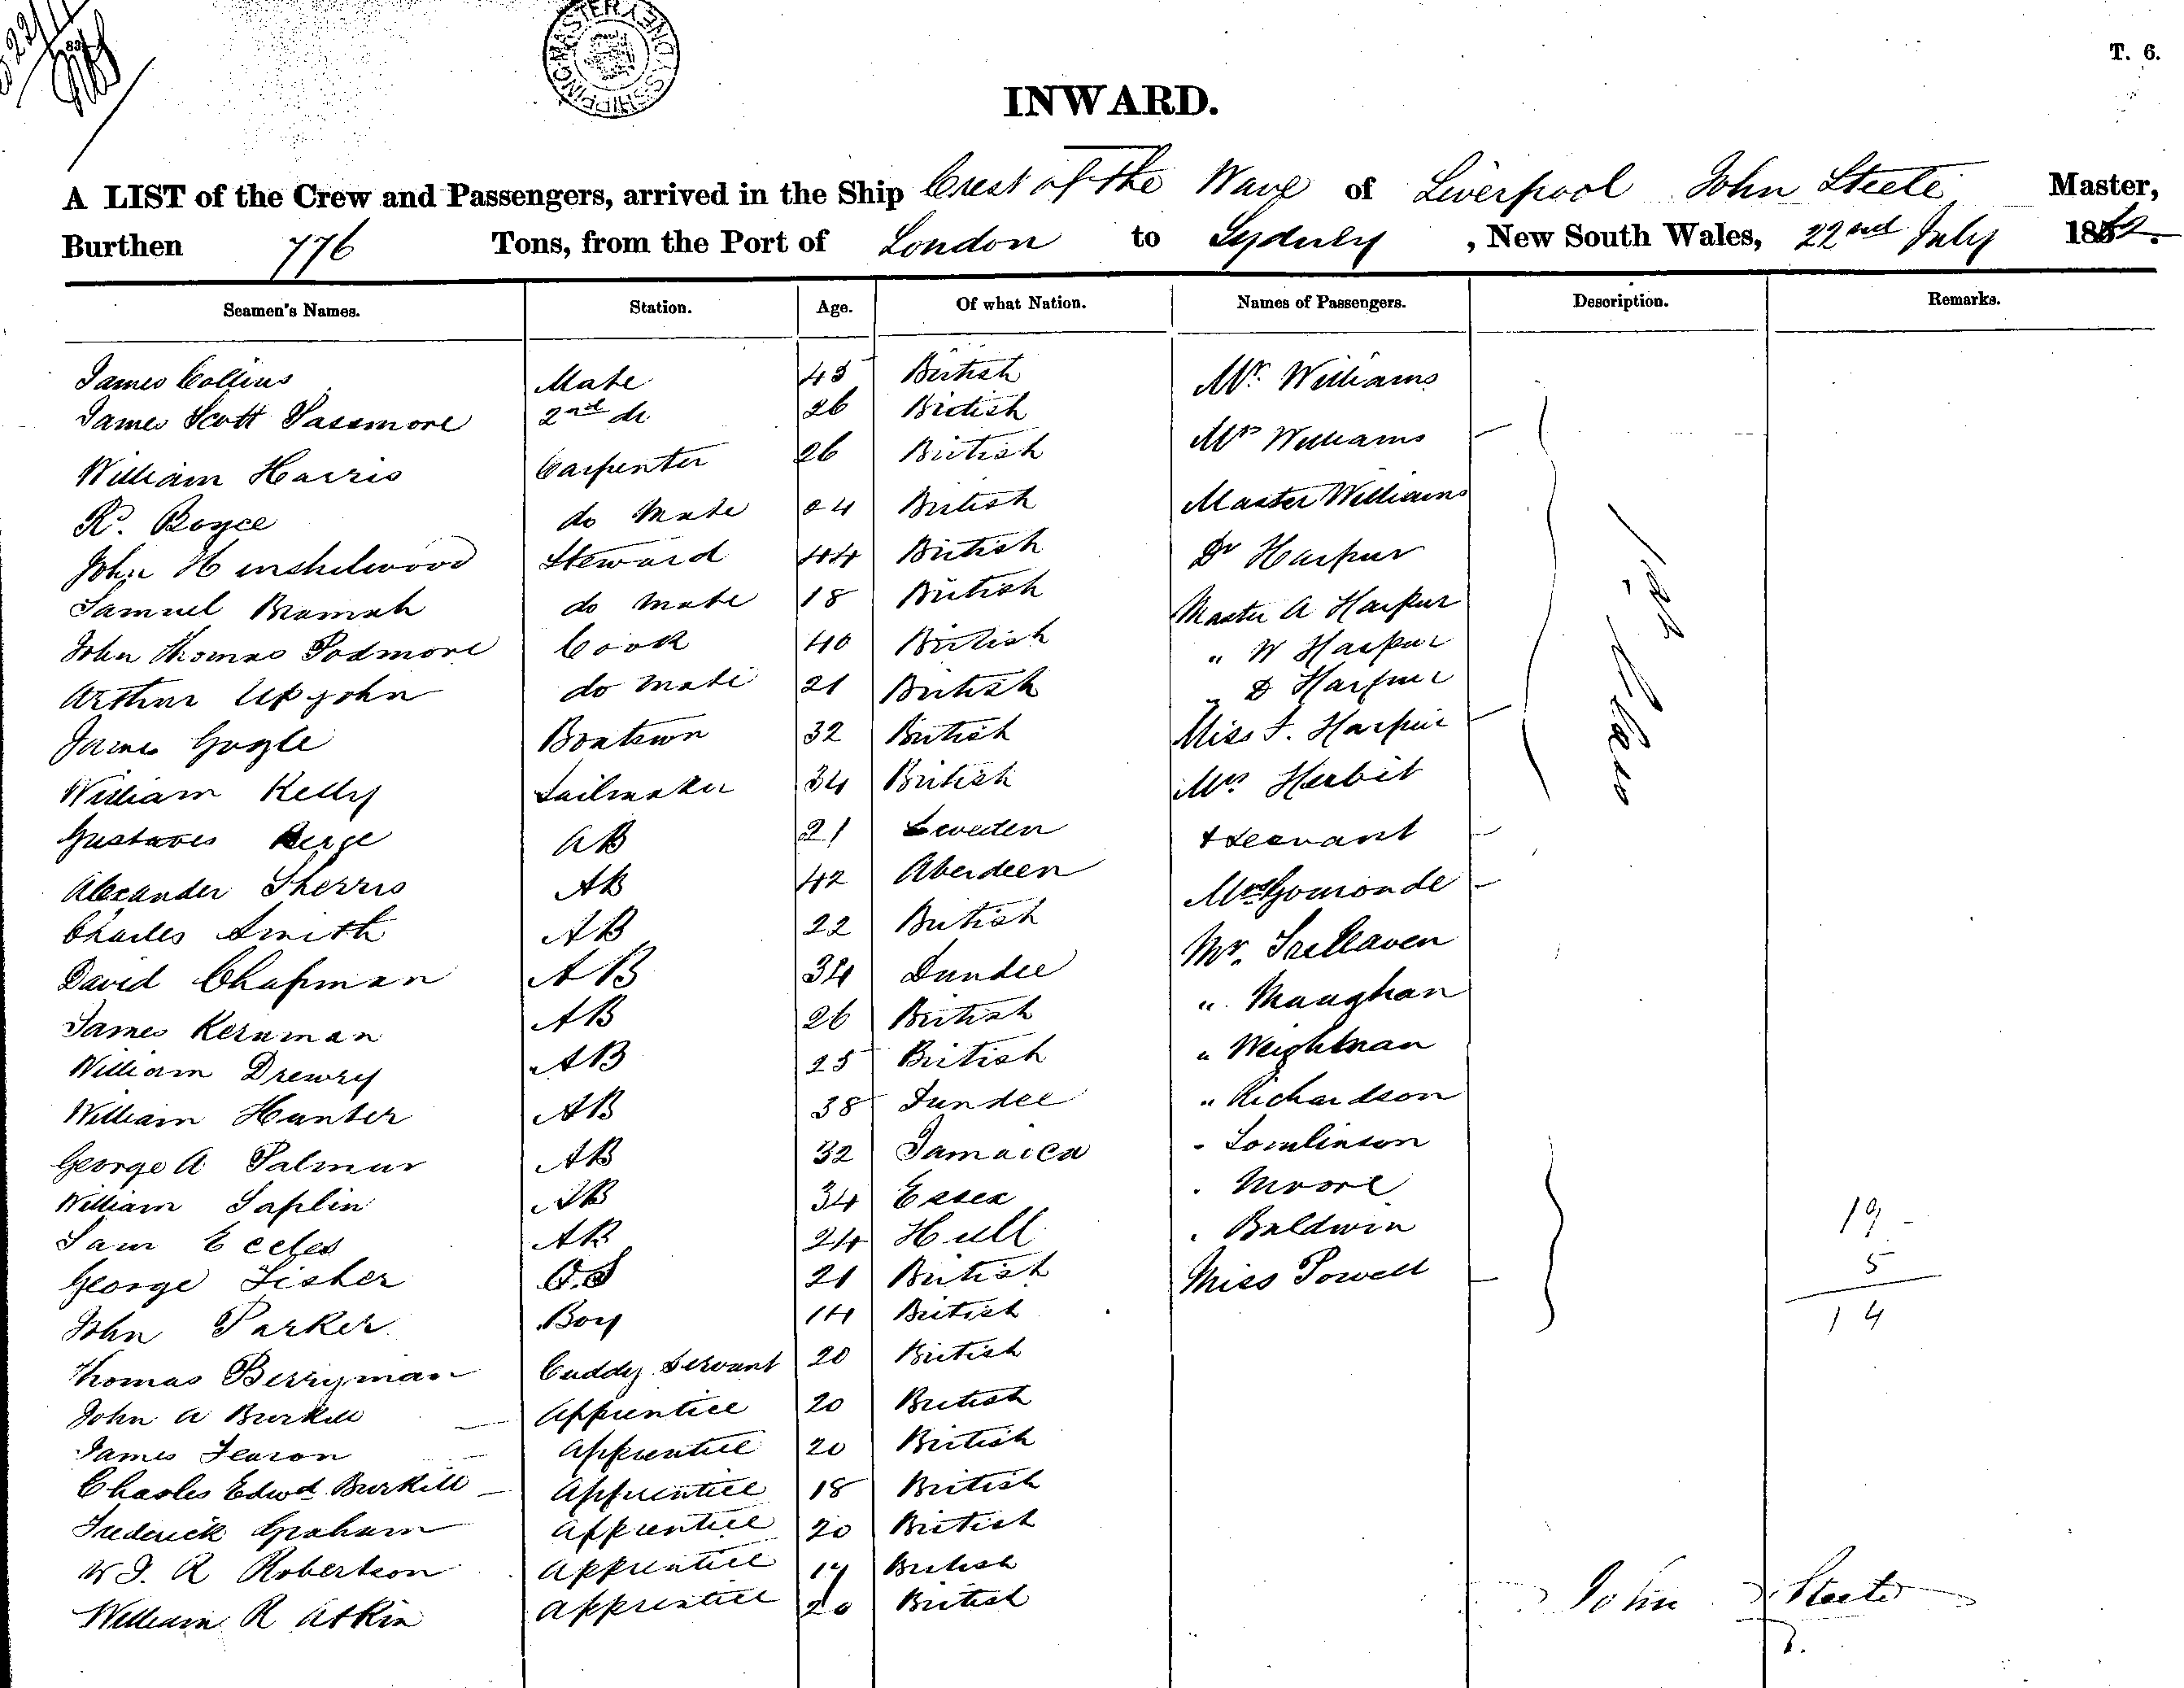 SHIPPING MASTER SYDNEY
T. 6.
INWARD.
A LIST of the Crew and Passengers, arrived in the Ship Crest of the Wave of Liverpool John Steele Master,
Burthen 776 Tons, from the Port of London to Sydney, New South Wales, 22nd July 18
Seamen's Names. Station. Age. Of what Nation. Names of Passengers. Description. Remarks.
James Collins Mate 45 British Mr. Williams
James Scott Passmore 2nd do 26 British Mrs Williams
William Harris Carpenter 26 British Master Williams
R. Boyce do Mate 24 British Dr Harpur
John Henshilwood Steward 44 British Master A Harpur
Samuel Bramah do mate 18 British " W Harpur
John Thomas Podmore Cook 40 British " D Harpur
Arthur Upjohn do mate 21 British Miss F. Harpur
James Gogle Boatswn 32 British Mrs Herbit
William Kelly Sailmaker 34 British + Servant
Gustaves Berge AB 21 Sweden Mrs Gomonde
Alexander Sherris AB 42 Aberdeen Mr. Trellaven
Charles Smith AB 22 British " Maughan
David Chapman AB 34 Dundee " Weightman
James Kernman AB 26 British " Richardson
William Drewry AB 25 British " Tomlinson
William Hunter AB 38 Dundee " Moore
George A Palmer AB 32 Jamaica " Baldwin
William Taplin AB 34 Essex Miss Powell
Sam Eccles AB 24 Hull
George Fisher O.S 21 British
John Parker Boy 14 British
Thomas Berryman Cuddy Servant 20 British
John A Burkill Apprentice 20 British
James Fearon Apprentice 20 British
Charles Edwd Burkill Apprentice 18 British
Frederick Graham Apprentice 20 British
W J. R Robertson Apprentice 17 British
William R Atkin Apprentice 20 British
19
5
14
John Steele